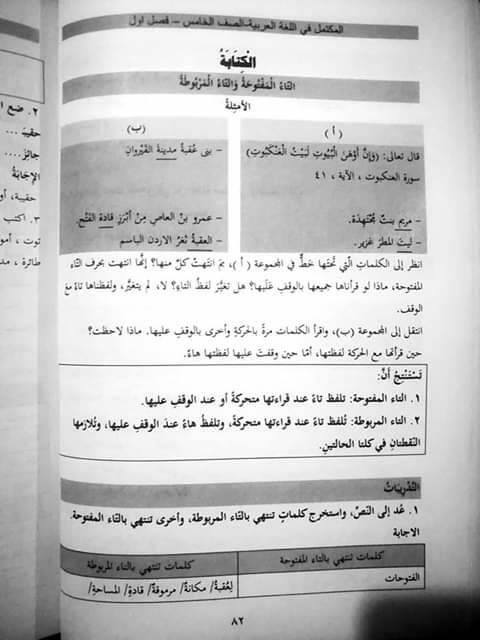 المكتمل في اللغة العربية-الصف الخامس – فصل اول
الْكِتَابَةُ
التّاءُ الْمَفْتُوحَةُ وَالتّاءُ الْمَرْبُوطَةُ
الأَمثِلةُ
( أ )
قال تعالى: (وَإِنَّ أَوْهَنَ الْبُيُوتِ لَبَيْتُ الْعَنْكَبُوتِ)
سورة العنكبوت ، الآية ، ٤١
– مريم بنتٌ مُجْتَهِدَة.
– ليتَ المطرَ غزير.
(ب)
– بنى عُقبةُ مدينةَ القَيْروانِ
– عمرو بنُ العاصِ مِنْ أَبْرَزِ قادةِ الفَتْحِ.
– العقبةُ ثغرُ الاردن الباسم
انظر إلى الكلماتِ الّتي تحتَها خطٌّ في المجموعة ( أ )، بمَ انتَهتْ كلّ منها؟ إنَّها انتهت بحرف التّاء
المفتوحة، ماذا لو قرأناها جميعها بالوقفِ عَلَيها؟ هل تغيَّرَ لفظُ التاءِ؟ لا، لم يتغيَّر، ولفظناها تاءً معَ
الوقف.
انتقل إلى المجموعة (ب)، واقرأ الكلمات مرةً بالحركةِ وأخرى بالوقفِ عليها. ماذا لاحظت؟
حين قرأتها مع الحركة لفظتها، أمّا حين وقفتَ عليها لفظتها هاءً.
تَسْتَنْتِجُ أَنَّ:
١. التاء المفتوحة: تلفظ تاءً عند قراءتها متحركةً أو عند الوقفِ عليها.
٢. التاء المربوطة: تُلفظ تاءً عند قراءتها متحركةً، وتلفظُ هاءً عندَ الوقفِ عليها، وتُلازمها
النّقطتانِ في كلتا الحالتينِ.
التَّدْرِيبَاتُ
١. عُد إلى النّصِّ، واستخرج كلماتٍ تنتهي بالتّاء المربوطة، وأخرى تنتهي بالتّاء المفتوحة.
الاجابة
كلمات تنتهي بالتاء المفتوحة
كلمات تنتهي بالتاء المربوطة
الفتوحات
لِعُقبةُ/ مكانةٌ/ مرموقةٌ/ قادةِ/ المساحةِ/
٨٢
٢. ضع ا
حقيبَـ ...
جائزَ....
الإجابَةُ
حقيبة، أو
٣. اكتب
توت ، أمو
طائرة ، مد